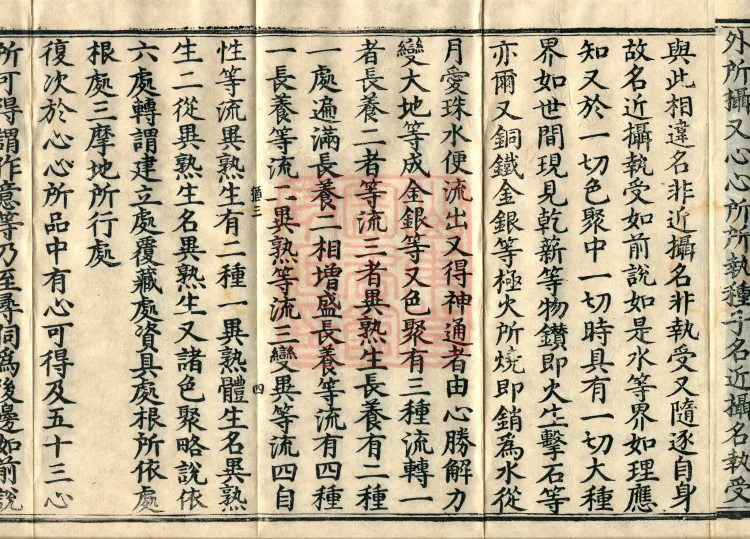 外所攝又心心所所執種子名近攝名執受
與此相違名非近攝名非執受又隨逐自身
故名近攝執受如前說如是水等界如理應
知又於一切色聚中一切時具有一切大種
界如世間現見乾薪等物鑽即火生擊石等
亦爾又銅鐵金銀等極火所燒即銷為水從
月愛珠水便流出又得神通者由心勝解力
變大地等成金銀等又色聚有三種流轉一
者長養二者等流三者異熟生長養有二種
一處遍滿長養二相增盛長養等流有四種
一長養等流二異熟等流三變異等流四自
性等流異熟生有二種一異熟體生名異熟
生二從異熟生名異熟生又諸色聚略說依
六處轉謂建立處覆藏處資具處根所依處
根處三摩地所行處
復次於心心所品中有心可得及五十三心
所可得謂作意等乃至尋伺為後邊如前說